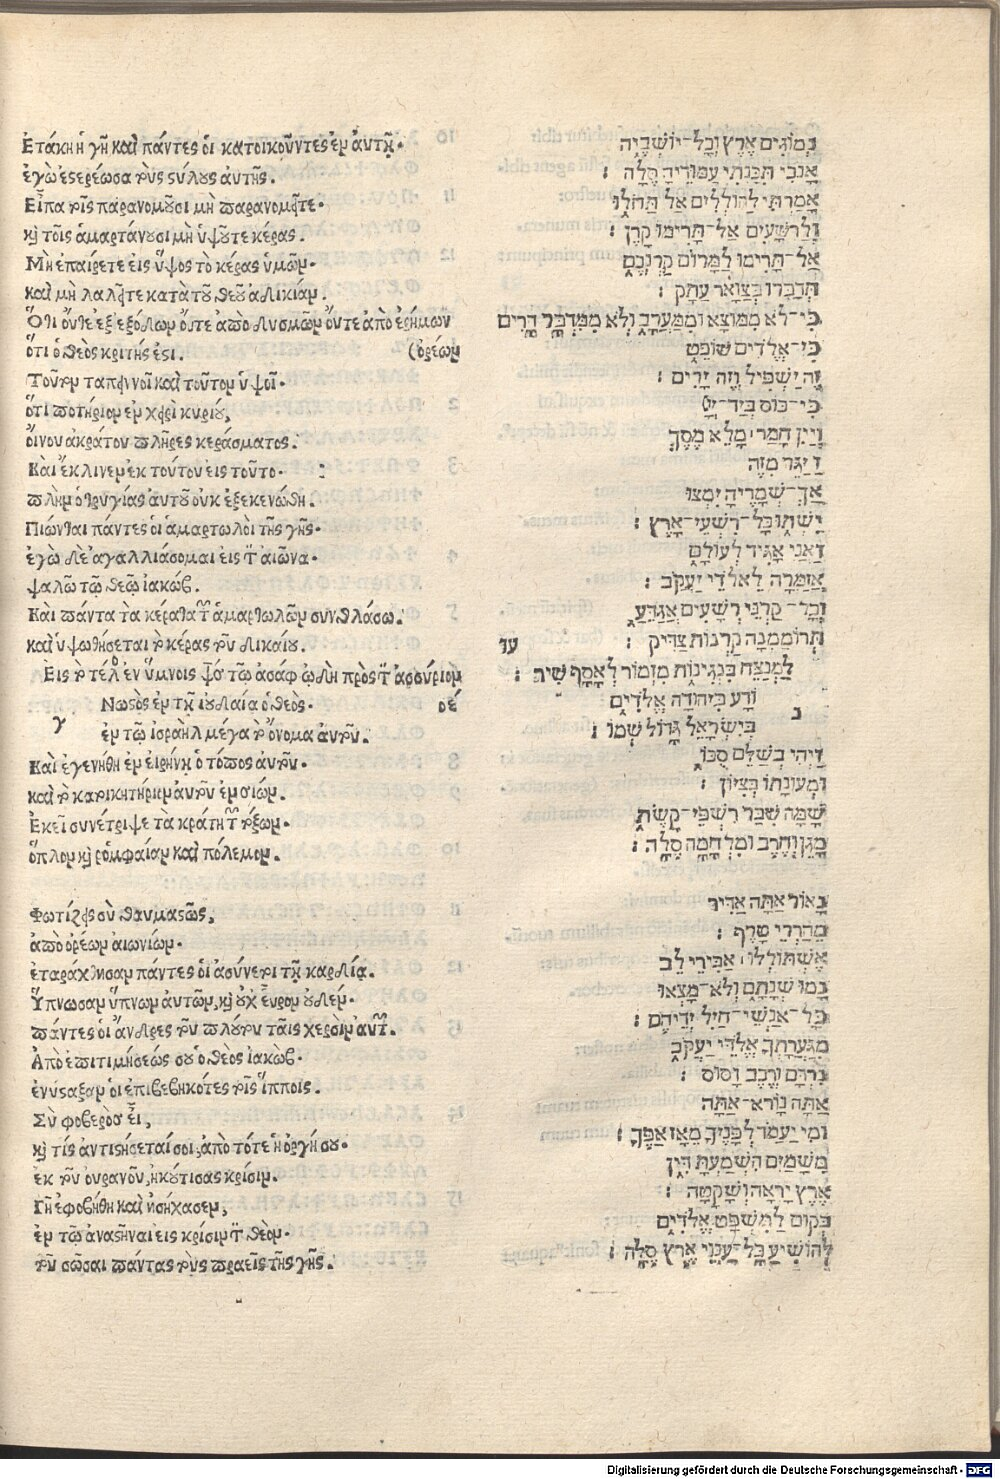 Ἐτάκη ἡ γῆ καὶ πάντες ὁι κατοικοῦντες ἐν ἀυτῇ·
ἐγὼ ἐστερέωσα τοὺς στύλους ἀυτῆς.
Εἶπα τοῖς παρανομοῦσι μὴ παρανομεῖτε·
καὶ τοῖς ἁμαρτάνουσι μὴ ὑψοῦτε κέρας.
Μὴ ἐπαίρετε εἰς ὕψος τὸ κέρας ὑμῶν·
καὶ μὴ λαλεῖτε κατὰ τοῦ θεοῦ ἀδικίαν.
Ὅτι ὄυτε ἐξ ἐξόδων ὄυτε ἀπὸ δυσμῶν ὄυτε ἀπὸ ἐρήμων
ὅτι ὁ θεὸς κριτής ἐστι. (ὀρέων
Τοῦτον ταπεινοῖ καὶ τοῦτον ὑψοῖ·
ὅτι ποτήριον ἐν χειρὶ κυρίου,
ὄινου ἀκράτου πλῆρες κεράσματος.
Καὶ ἔκλινεν ἐκ τούτου εἰς τοῦτο·
πλὴν ὁ τρυγίας ἀυτοῦ ὀυκ ἐξεκενώθη.
Πίονται πάντες ὁι ἁμαρτωλοὶ τῆς γῆς·
ἐγὼ δὲ ἀγαλλιάσομαι εἰς τὸν αἰῶνα·
ψαλῶ τῷ θεῷ ἰακώβ.
Καὶ πάντα τὰ κέρατα τῶν ἁμαρτωλῶν συνθλάσω.
καὶ ὑψωθήσεται τὸ κέρας τοῦ δικαίου.
Εἰς τὸ τέλος ἐν ὕμνοις ψαλμὸς τῷ ἀσάφ ᾠδὴ πρὸς τὸν ἀσσύριον
Νωστὸς ἐν τῇ ἰουδαίᾳ ὁ θεὸς· οέ
γ ἐν τῷ ἰσραὴλ μέγα τὸ ὄνομα ἀυτοῦ.
Καὶ ἐγενήθη ἐν εἰρήνῃ ὁ τόπος ἀυτοῦ·
καὶ τὸ κατοικητήριον ἀυτοῦ ἐν σιών.
Ἐκεῖ συνέτριψε τὰ κράτη τῶν τόξων·
ὅπλον καὶ ῥομφαίαν καὶ πόλεμον.
Φωτίζεις σὺ θαυμαστῶς,
ἀπὸ ὀρέων αἰωνίων·
ἐταράχθησαν πάντες ὁι ἀσύνετοι τῇ καρδίᾳ.
Ὕπνωσαν ὕπνον ἀυτῶν, καὶ ὀυχ ἕυρον ὀυδέν·
πάντες ὁι ἄνδρες τοῦ πλούτου ταῖς χερσὶν ἀυτῶν.
Ἀπὸ ἐπιτιμήσεώς σου ὁ θεὸς ἰακώβ·
ἐνύσταξαν ὁι ἐπιβεβηκότες τοῖς ἵπποις.
Σὺ φοβερὸς εἶ,
καὶ τίς ἀντιστήσεταί σοι, ἀπὸ τότε ἡ ὀργή σου·
ἐκ τοῦ ὀυρανοῦ, ἠκούτισας κρίσιν.
Γῆ ἐφοβήθη καὶ ἡσύχασεν,
ἐν τῷ ἀναστῆναι εἰς κρίσιν τὸν θεὸν·
τοῦ σῶσαι πάντας τοὺς πραεῖς τῆς γῆς.
נְמוֹגִים אֶרֶץ וְכָל־יוֹשְׁבֶיהָ
אָנֹכִי תִכַּנְתִּי עַמּוּדֶיהָ סֶּלָה׃
אָמַרְתִּי לַהוֹלְלִים אַל תָּהֹלּוּ
וְלָרְשָׁעִים אַל־תָּרִימוּ קָרֶן׃
אַל־תָּרִימוּ לַמָּרוֹם קַרְנְכֶם
תְּדַבְּרוּ בְצַוָּאר עָתָק׃
כִּי־לֹא מִמּוֹצָא וּמִמַּעֲרָב וְלֹא מִמִּדְבַּר הָרִים
כִּי־אֱלֹדִים שׁוֹפֵט
זֶה יַשְׁפִּיל וְזֶה יָרִים׃
כִּי־כוֹס בְּיַד־יְיָ
וְיַיִן חָמַר מָלֵא מֶסֶךְ
וַיַּגֵּר מִזֶּה
אַךְ־שְׁמָרֶיהָ יִמְצוּ
יִשְׁתּוּ כָּל־רִשְׁעֵי־אָרֶץ׃
וַאֲנִי אַגִּיד לְעוֹלָם
אֲזַמְּרָה לֵאלֹדֵי יַעֲקֹב׃
וְכָל־קַרְנֵי רְשָׁעִים אֲגַדֵּעַ
תְּרוֹמַמְנָה קַרְנוֹת צַדִּיק׃ עו
לַמְנַצֵּחַ בִּנְגִינוֹת מִזְמוֹר לְאָסָף שִׁיר׃
נוֹדָע בִּיהוּדָה אֱלֹדִים ב
בְּיִשְׂרָאֵל גָּדוֹל שְׁמוֹ׃
וַיְהִי בְשָׁלֵם סֻכּוֹ
וּמְעוֹנָתוֹ בְצִיּוֹן׃
שָׁמָּה שִׁבַּר רִשְׁפֵי־קָשֶׁת
מָגֵן וְחֶרֶב וּמִלְחָמָה סֶלָה׃
נָאוֹר אַתָּה אַדִּיר
מֵהַרְרֵי טָרֶף׃
אֶשְׁתּוֹלְלוּ אַבִּירֵי לֵב
נָמוּ שְׁנָתָם וְלֹא־מָצְאוּ
כָל־אַנְשֵׁי־חַיִל יְדֵיהֶם׃
מִגַּעֲרָתְךָ אֱלֹדֵי יַעֲקֹב
נִרְדָּם וְרֶכֶב וָסוּס׃
אַתָּה נוֹרָא־אַתָּה
וּמִי יַעֲמֹד לְפָנֶיךָ מֵאָז אַפֶּךָ׃
מִשָּׁמַיִם הִשְׁמַעְתָּ דִּין
אֶרֶץ יָרְאָה וְשָׁקָטָה׃
בְּקוּם לַמִּשְׁפָּט אֱלֹדִים
לְהוֹשִׁיעַ כָּל־עַנְוֵי אֶרֶץ סֶלָה׃
Digitalisierung gefördert durch die Deutsche Forschungsgemeinschaft - DFG